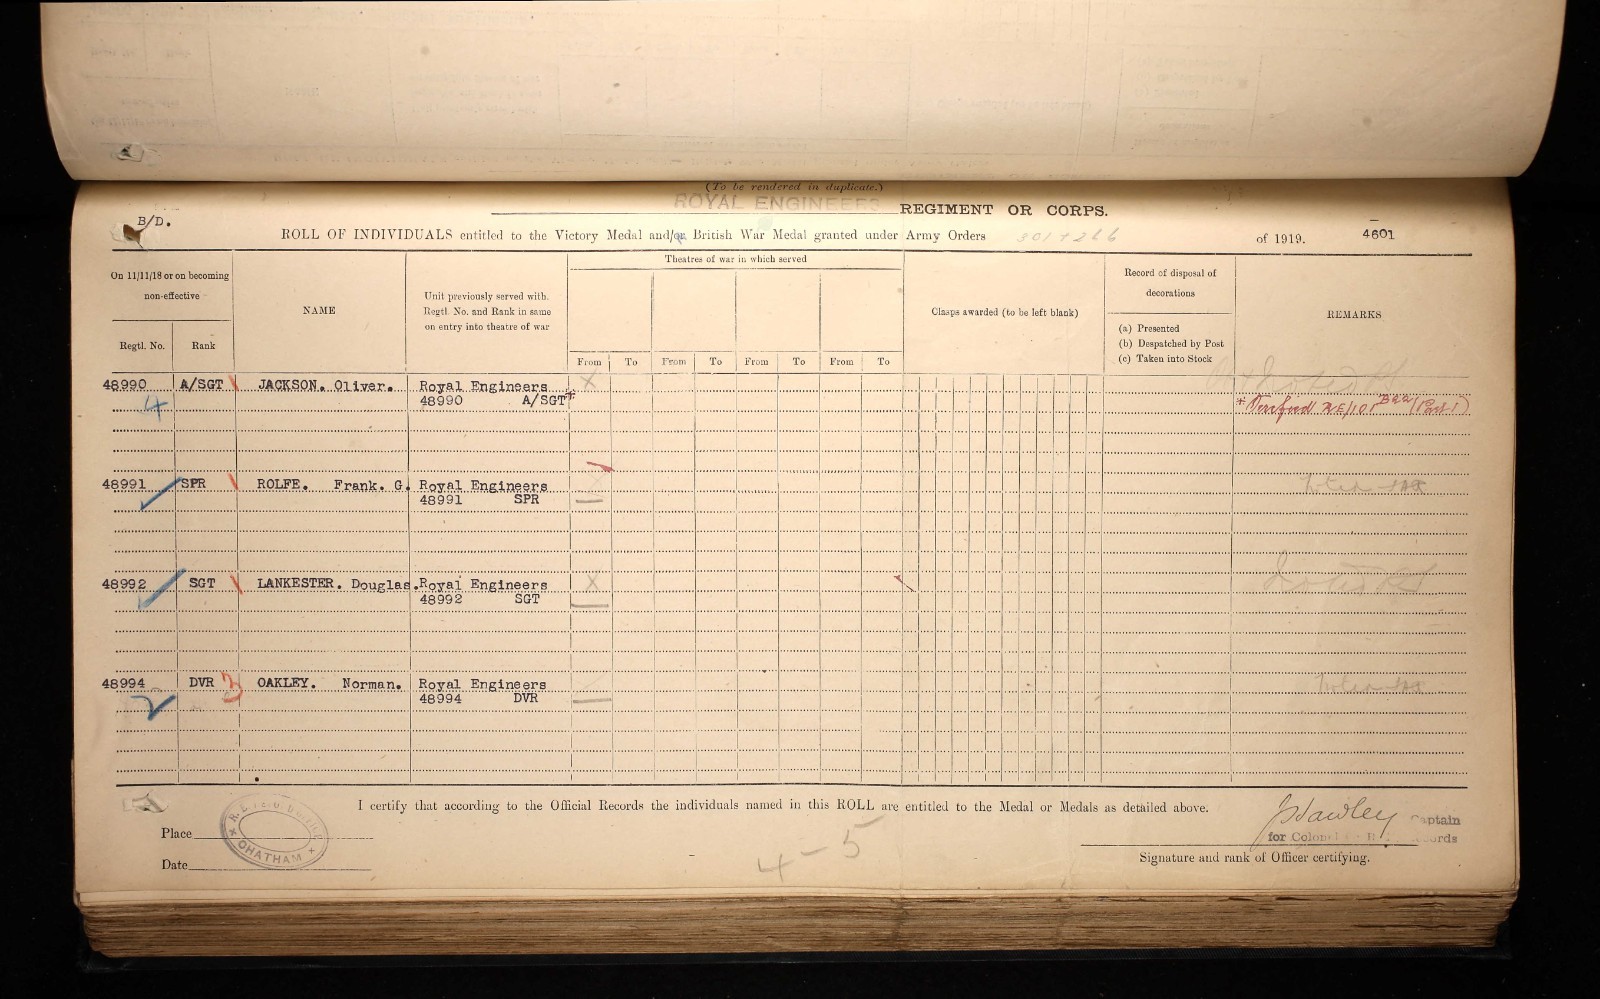 (To be rendered in duplicate.)
ROYAL ENGINEERS REGIMENT OR CORPS.
B/D.
ROLL OF INDIVIDUALS entitled to the Victory Medal and/or British War Medal granted under Army Orders 301 & 266 of 1919. 4601
On 11/11/18 or on becoming non-effective
Regtl. No. Rank
NAME
Unit previously served with.
Regtl. No. and Rank in same
on entry into theatre of war
Theatres of war in which served
From To From To From To From To
Clasps awarded (to be left blank)
Record of disposal of
decorations
(a) Presented
(b) Despatched by Post
(c) Taken into Stock
REMARKS
48990 A/SGT JACKSON. Oliver. Royal Engineers X
4 48990 A/SGT*
48991 SPR ROLFE. Frank. G. Royal Engineers
48991 SPR
48992 SGT LANKESTER. Douglas. Royal Engineers X
48992 SGT
48994 DVR 3 OAKLEY. Norman. Royal Engineers
2 48994 DVR
I certify that according to the Official Records the individuals named in this ROLL are entitled to the Medal or Medals as detailed above.
Place
Date
CHATHAM
4-5
Captain
for Colonel
Signature and rank of Officer certifying.